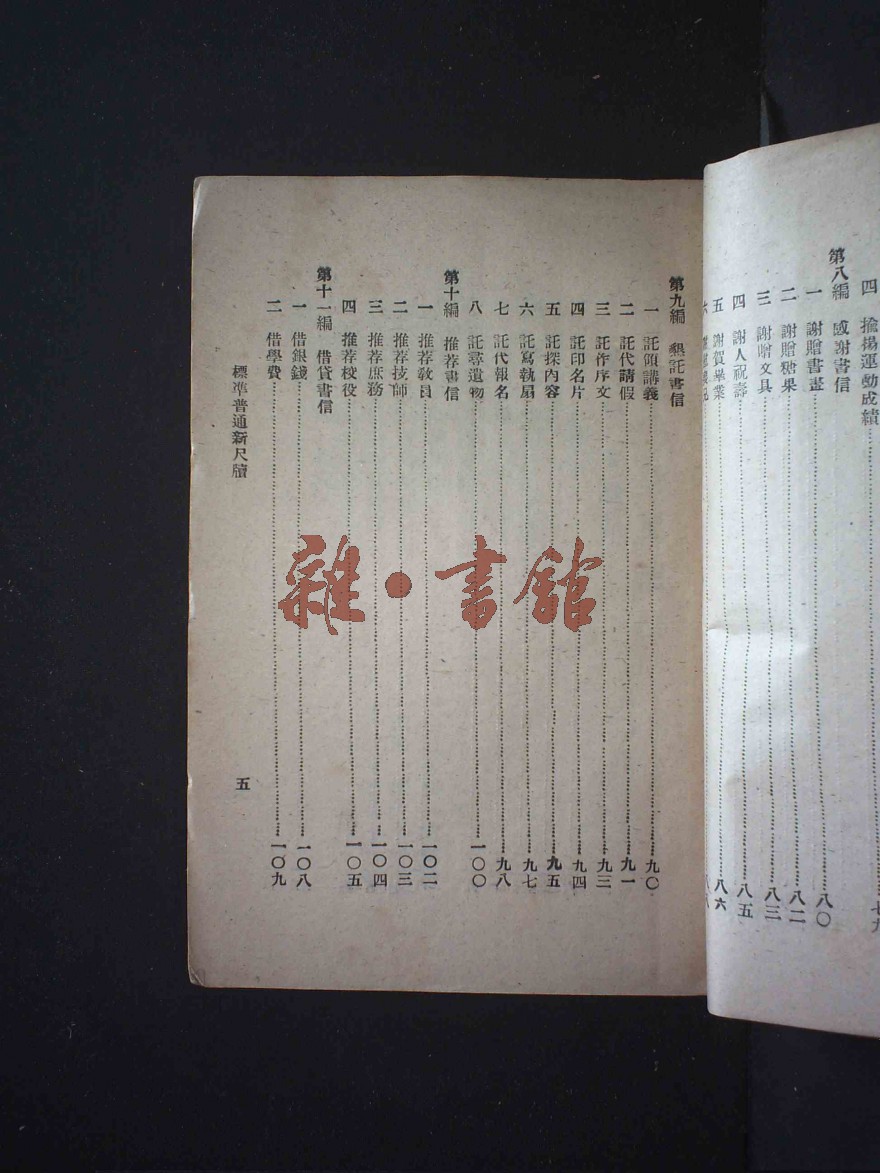 四 揄揚運動成績 七九
第八編 感謝書信
一 謝贈書畫 八〇
二 謝贈糖果 八二
三 謝贈文具 八三
四 謝人祝壽 八五
五 謝賀畢業 八六
六
第九編 懇託書信
一 託領講義 九〇
二 託代請假 九一
三 託作序文 九三
四 託印名片 九四
五 託探內容 九五
六 託寫執扇 九七
七 託代報名 九八
八 託尋遺物 一〇〇
第十編 推荐書信
一 推荐敎員 一〇二
二 推荐技師 一〇三
三 推荐庶務 一〇四
四 推荐校役 一〇五
第十一編 借貸書信
一 借銀錢 一〇八
二 借學費 一〇九
標準普通新尺牘
五
雜·書館